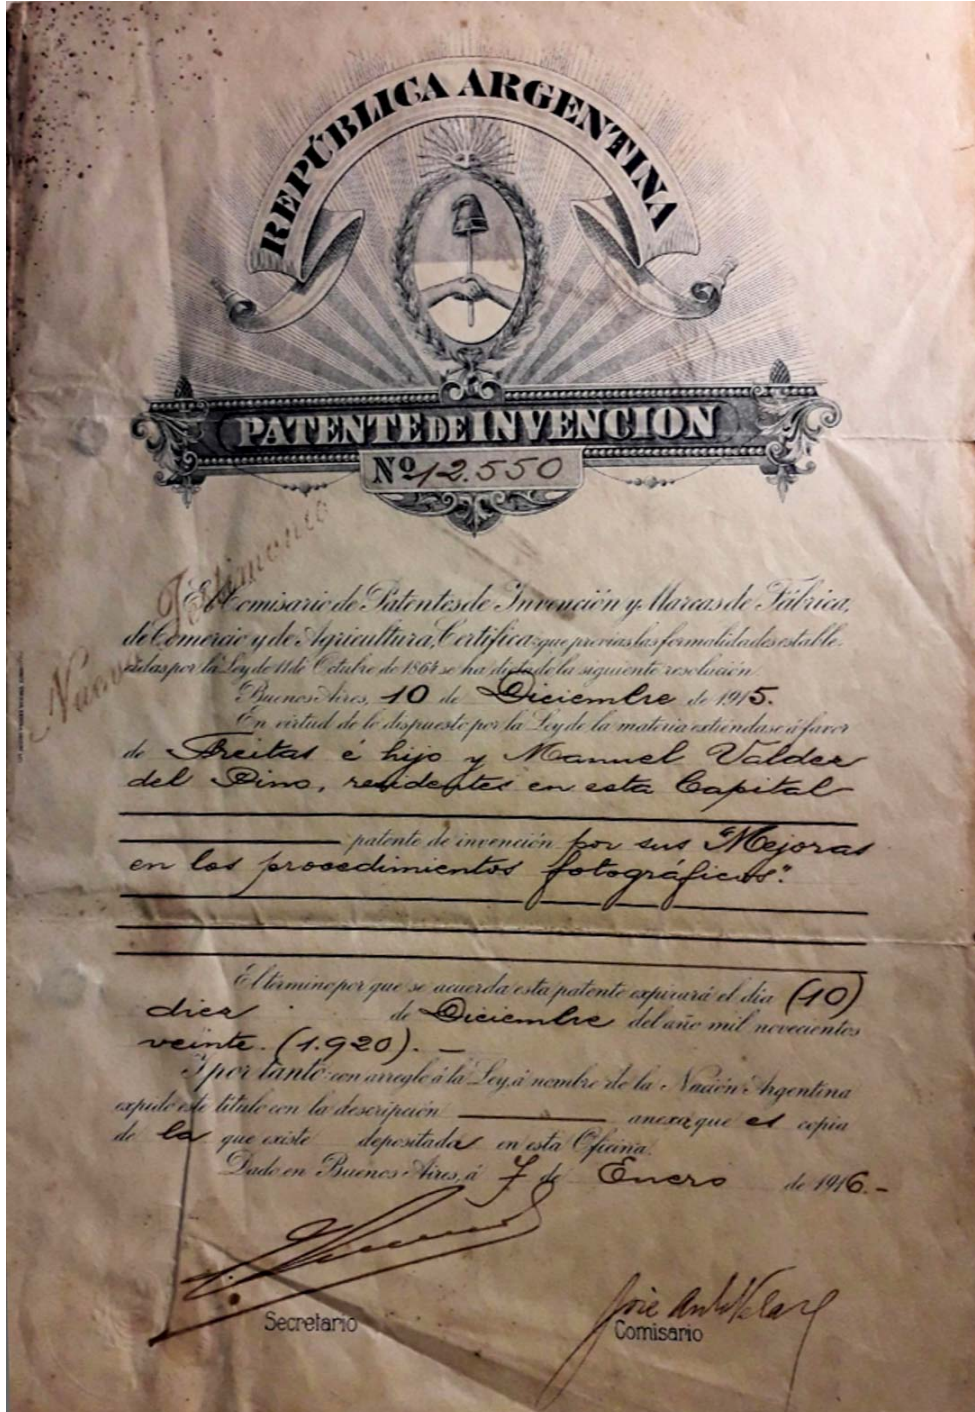 REPÚBLICA ARGENTINA
PATENTE DE INVENCION
Nº 12.550
Nuevo Testimonio
El Comisario de Patentes de Invención y Marcas de Fábrica,
de Comercio y de Agricultura, Certifica: que previas las formalidades estable-
cidas por la Ley de 11 de Octubre de 1864 se ha dictado la siguiente resolución
Buenos Aires, 10 de Diciembre de 1915.
En virtud de lo dispuesto por la Ley de la materia extiéndase á favor
de Freitas é hijo y Manuel Valdez
del Pino, residentes en esta Capital
patente de invención por sus "Mejoras
en los procedimientos fotográficos".
El término por que se acuerda esta patente expirará el dia (10)
diez de Diciembre del año mil novecientos
veinte. (1.920). —
Y por tanto: con arreglo á la Ley, á nombre de la Nación Argentina
expido este titulo con la descripción anexa que es copia
de la que existe depositada en esta Oficina.
Dado en Buenos Aires, á 7 de Enero de 1916.-
Secretario
Comisario